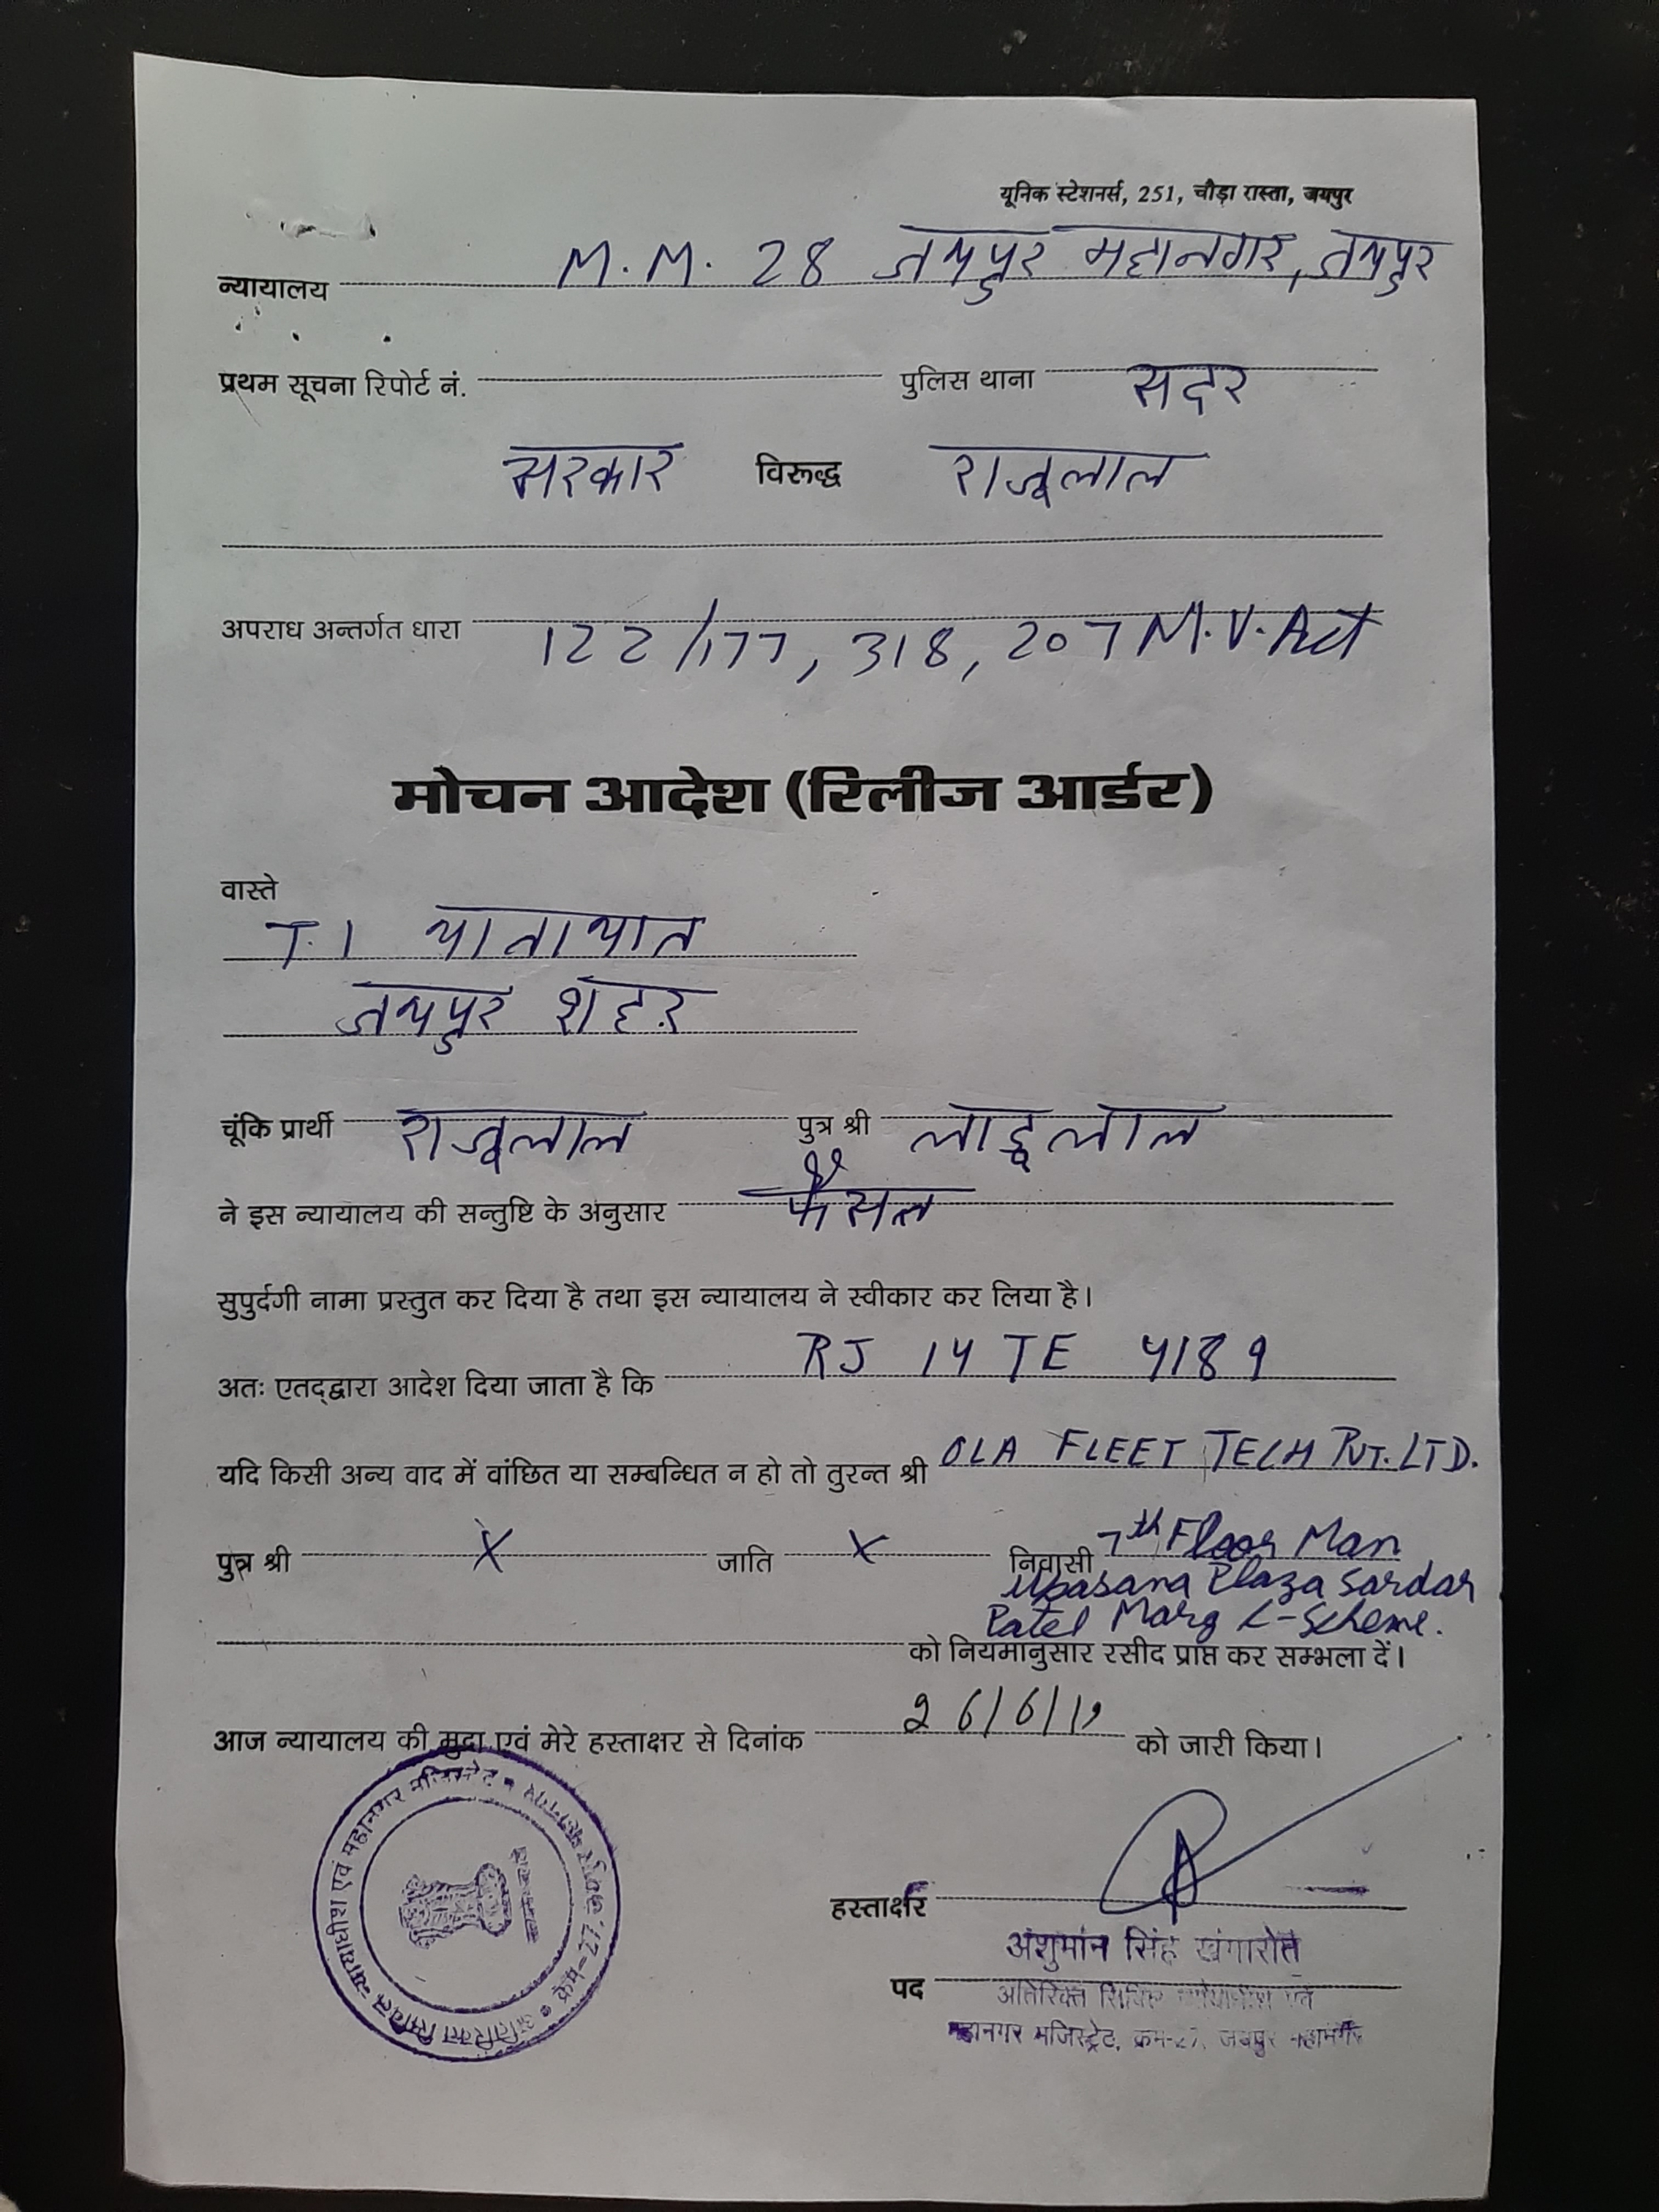 यूनिक स्टेशनर्स, 251, चौड़ा रास्ता, जयपुर
न्यायालय M.M. 28 जयपुर महानगर, जयपुर
प्रथम सूचना रिपोर्ट नं. पुलिस थाना सदर
सरकार विरूद्ध राजूलाल
अपराध अन्तर्गत धारा 122/177, 318, 207 M.V. Act
मोचन आदेश (रिलीज आर्डर)
वास्ते
T.I यातायात
जयपुर शहर
चूंकि प्रार्थी राजूलाल पुत्र श्री लादूलाल
ने इस न्यायालय की सन्तुष्टि के अनुसार फैसल
सुपुर्दगी नामा प्रस्तुत कर दिया है तथा इस न्यायालय ने स्वीकार कर लिया है।
अतः एतद्द्वारा आदेश दिया जाता है कि RJ 14 TE 4189
यदि किसी अन्य वाद में वांछित या सम्बन्धित न हो तो तुरन्त श्री OLA FLEET TECH PVT. LTD.
पुत्र श्री X जाति X निवासी 7th Floor Man
Upasana Plaza Sardar
Patel Marg C-Scheme.
को नियमानुसार रसीद प्राप्त कर सम्भला दें।
आज न्यायालय की मुद्रा एवं मेरे हस्ताक्षर से दिनांक 26/6/19 को जारी किया।
अतिरिक्त सिविल न्यायाधीश एवं महानगर मजिस्ट्रेट
हस्ताक्षर
अंशुमान सिंह खंगारोत
पद अतिरिक्त सिविल न्यायाधीश एवं
महानगर मजिस्ट्रेट, क्रम-27, जयपुर महानगर